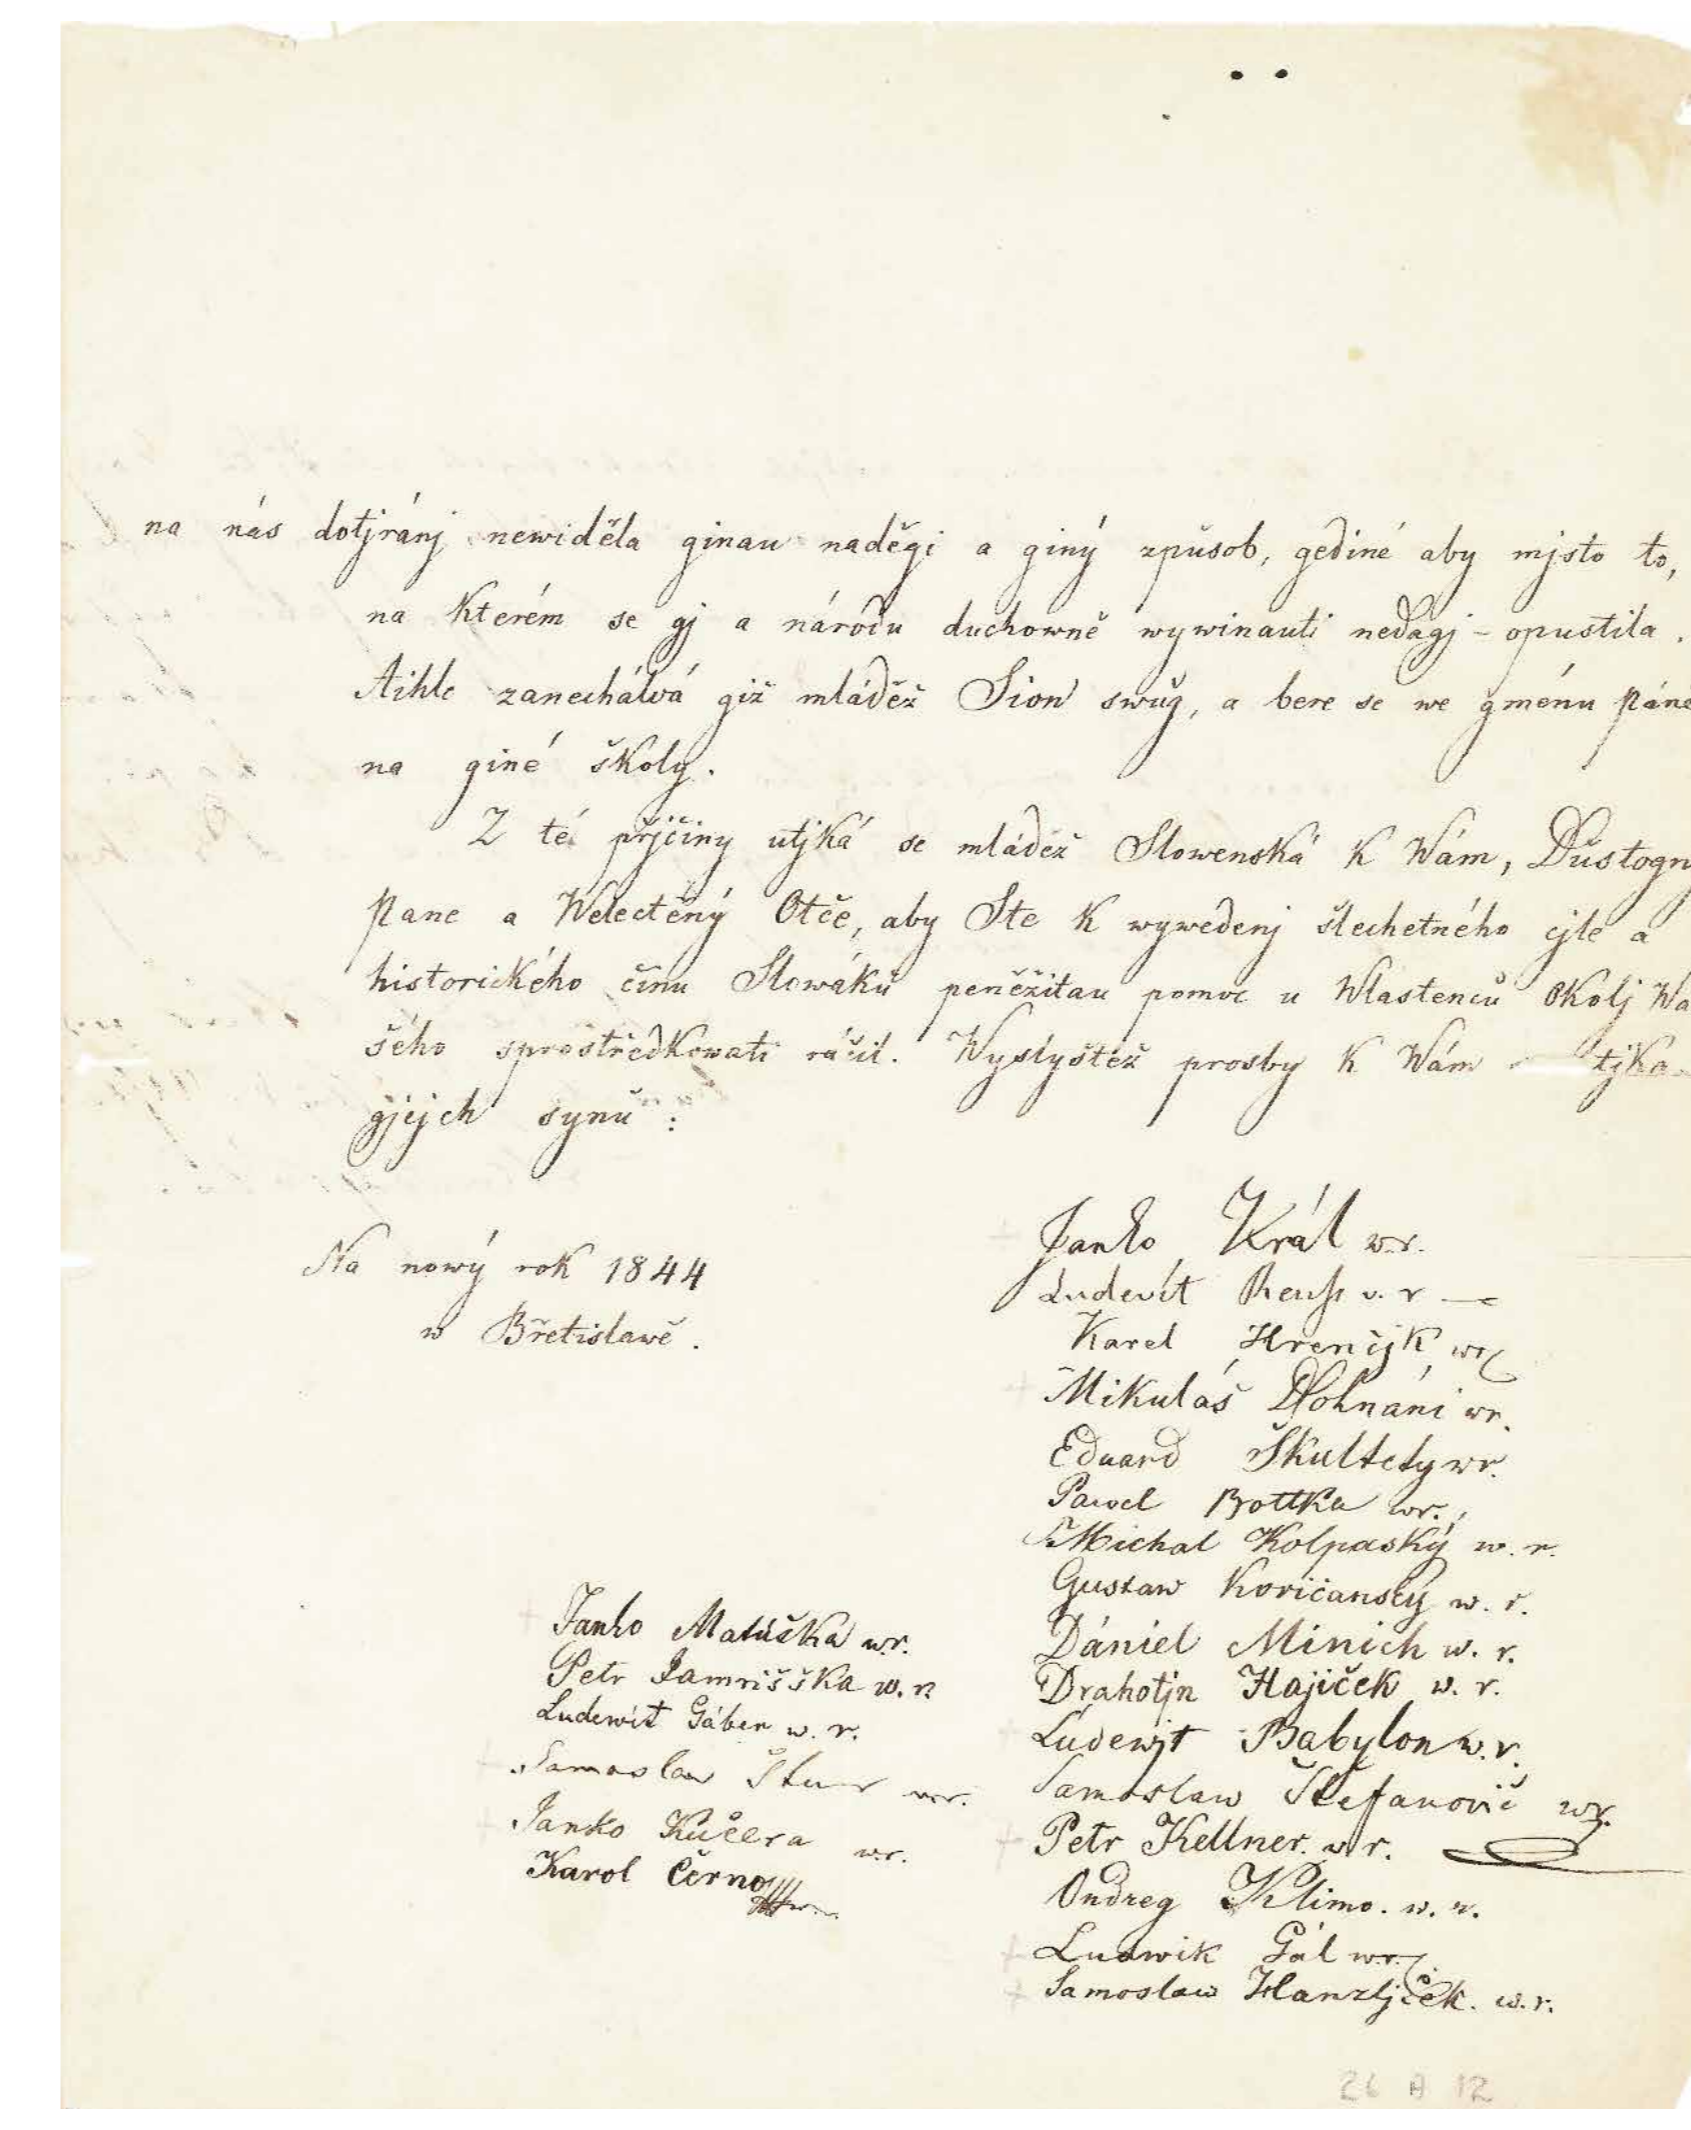 na nás dotjránj newiděla ginau naděgi a giný způsob, gediné aby mjsto to,
na kterém se gj a národu duchowně wywinauti nedagj - opustila.
Aihle zanechálwá giž mládež Sion swůg, a bere se we gménu Páně
na giné školy.
Z té přjčiny utjká se mládež Slowenská k Wám, Důstogn
Pane a Welectěný Otče, aby Ste k wywedenj šlechetného cjle a
historického činu Slowáků peněžitau pomoc u Wlastenců okolj Wa
šeho sprostředkowati ráčil. Wyslyštež prosby k Wám tjka-
gjcjch synů:
Na nowý rok 1844
w Břetislawě.
Janko Král wr.
Ludevít Reuss v. r
Karel Hrenčjk wr
Mikuláš Dohnáni wr.
Eduard Škultety wr.
Pawel Bottka wr.
Michal Kolpaský w. r.
Gustaw Koričanský w. r.
Dániel Minich w. r.
Drahotjn Hajiček w. r.
Ludewjt Babylon w. r.
Samoslaw Štefanovič wr.
Petr Kellner. w r.
Ondreg Klimo. w. r.
Ludwik Gál wr.
Samoslaw Hanzljček. w. r.
Janko Matúška wr.
Petr Jamriška w. r.
Ludewít Gáber w. r.
Samoslaw Štur wr.
Janko Kučera wr.
Karol Černo
26 A 12